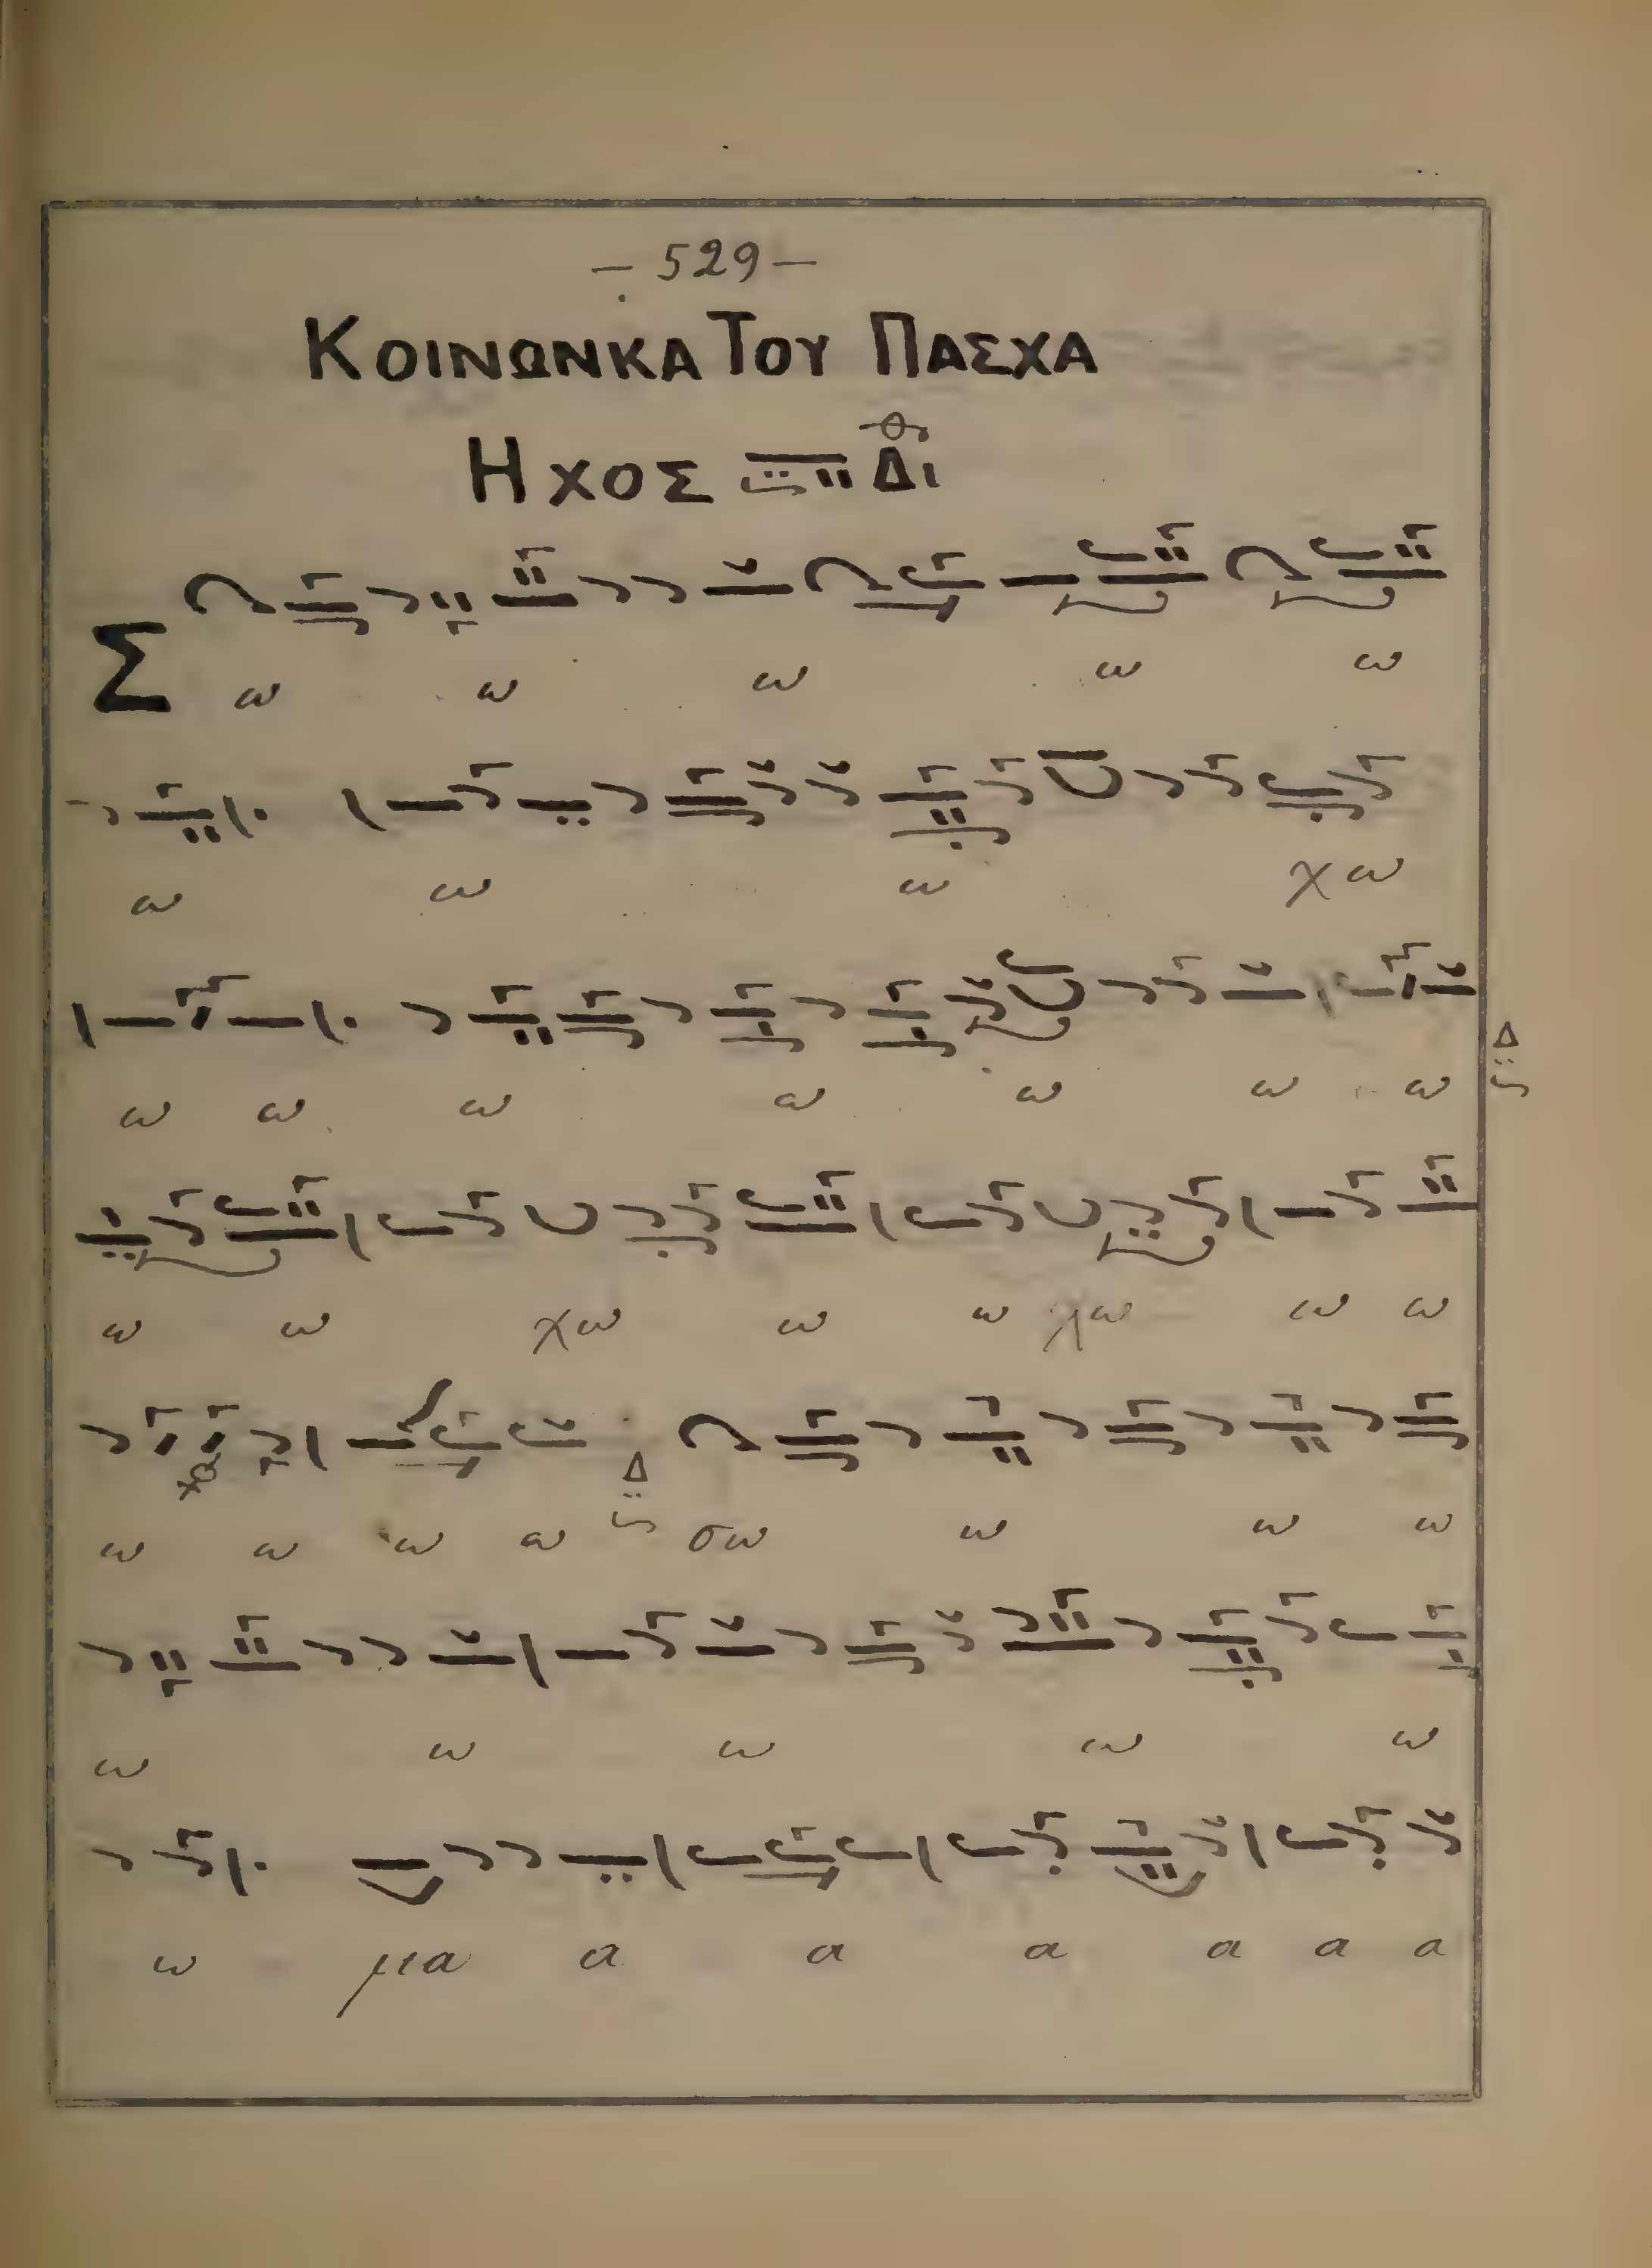 - 529 -
ΚΟΙΝΩΝΚΑ ΤΟΥ ΠΑΣΧΑ
ΗΧΟΣ Δι
Σ ω ω ω ω ω
ω ω ω χω
ω ω ω ω ω ω ω
Δ
ω ω χω ω ω χω ω ω
Δ
ω ω ω ω σω ω ω ω
ω ω ω ω ω
ω μα α α α α α α